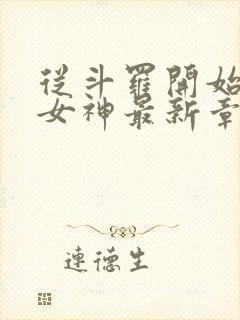 從斗羅開始
女神最新章
連德生